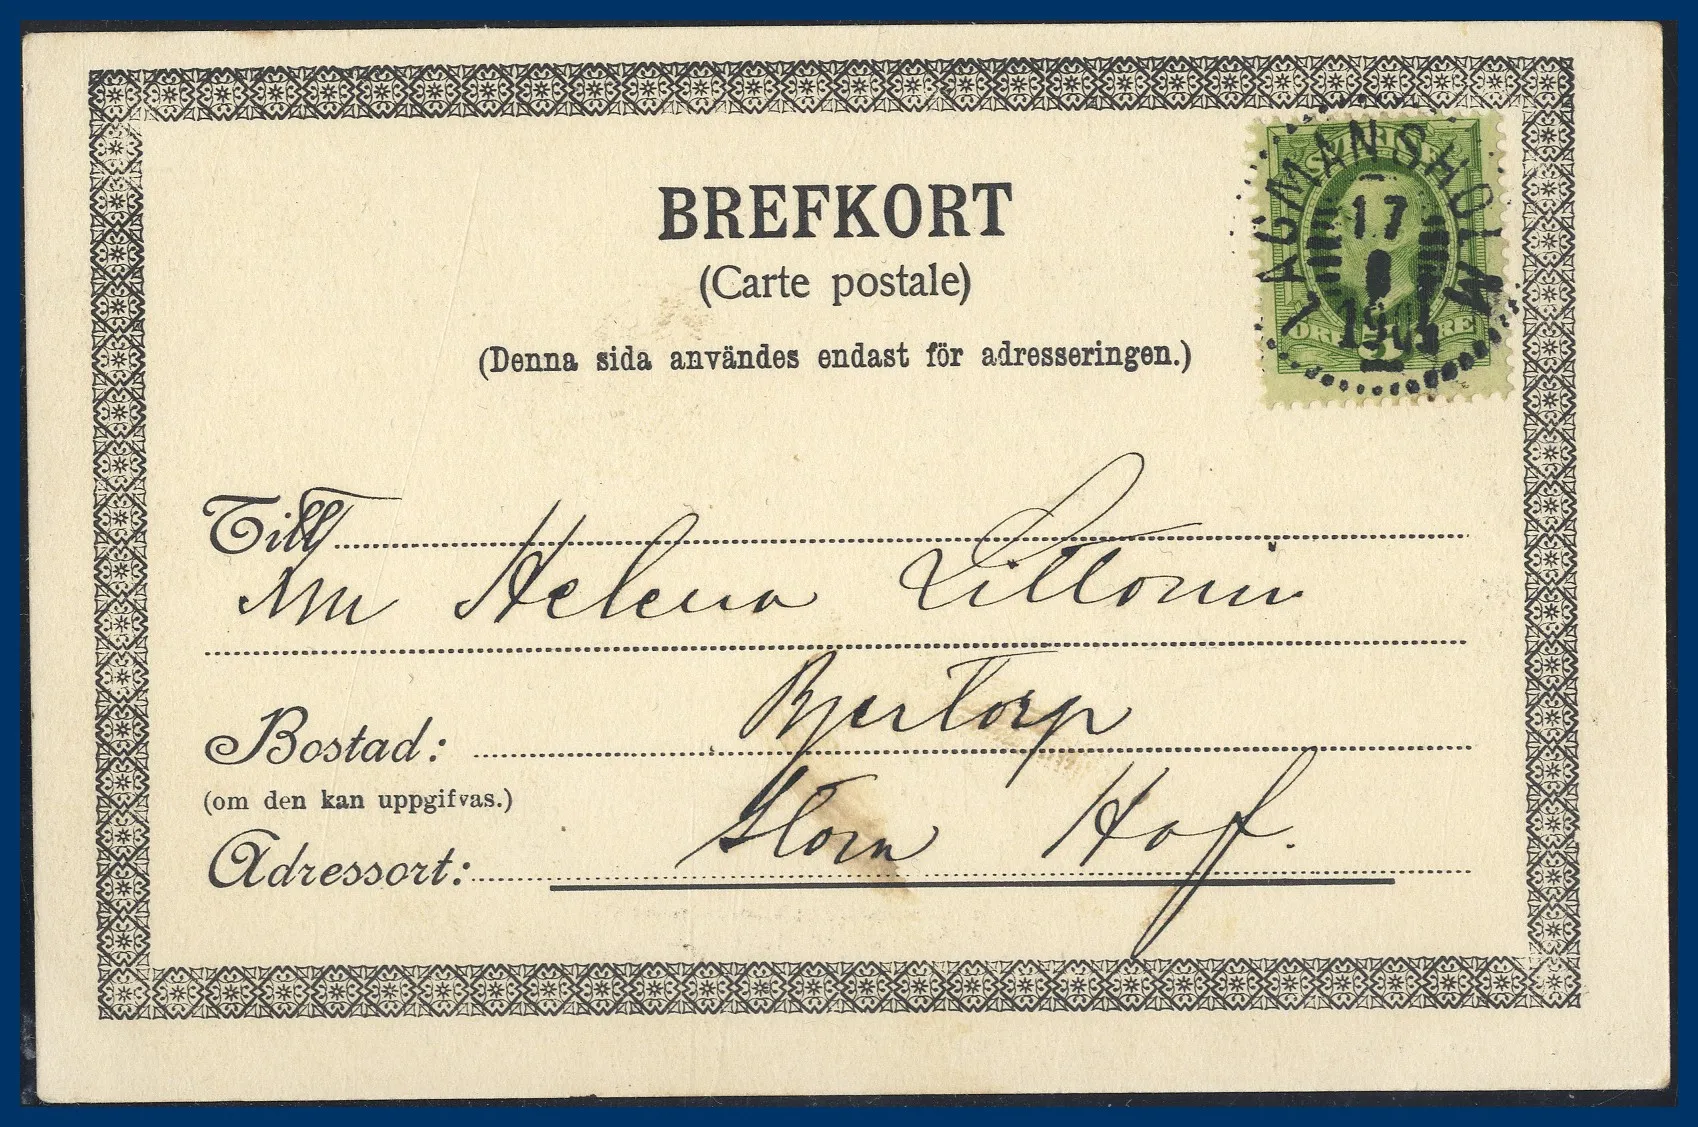 BREFKORT
(Carte postale)
(Denna sida användes endast för adresseringen.)
SVERIGE
LAGMANSHOLM
17
8
Till
Helena Littorin
Bostad: Bjertorp
(om den kan uppgifvas.)
Adressort: Stora Hof.